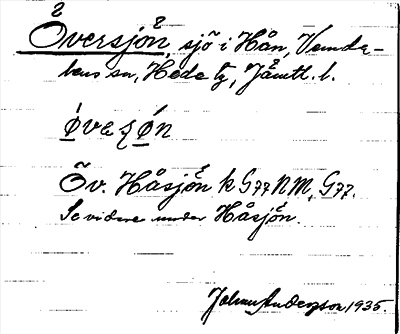 Översjön, sjö i Hån, Vemda-
lens sn, Hede tg, Jämtl. l.
Øveʂøn
Öv. Håsjön k G77 NM, G77.
Se vidare under Håsjön.
Johan Anderson 1935.